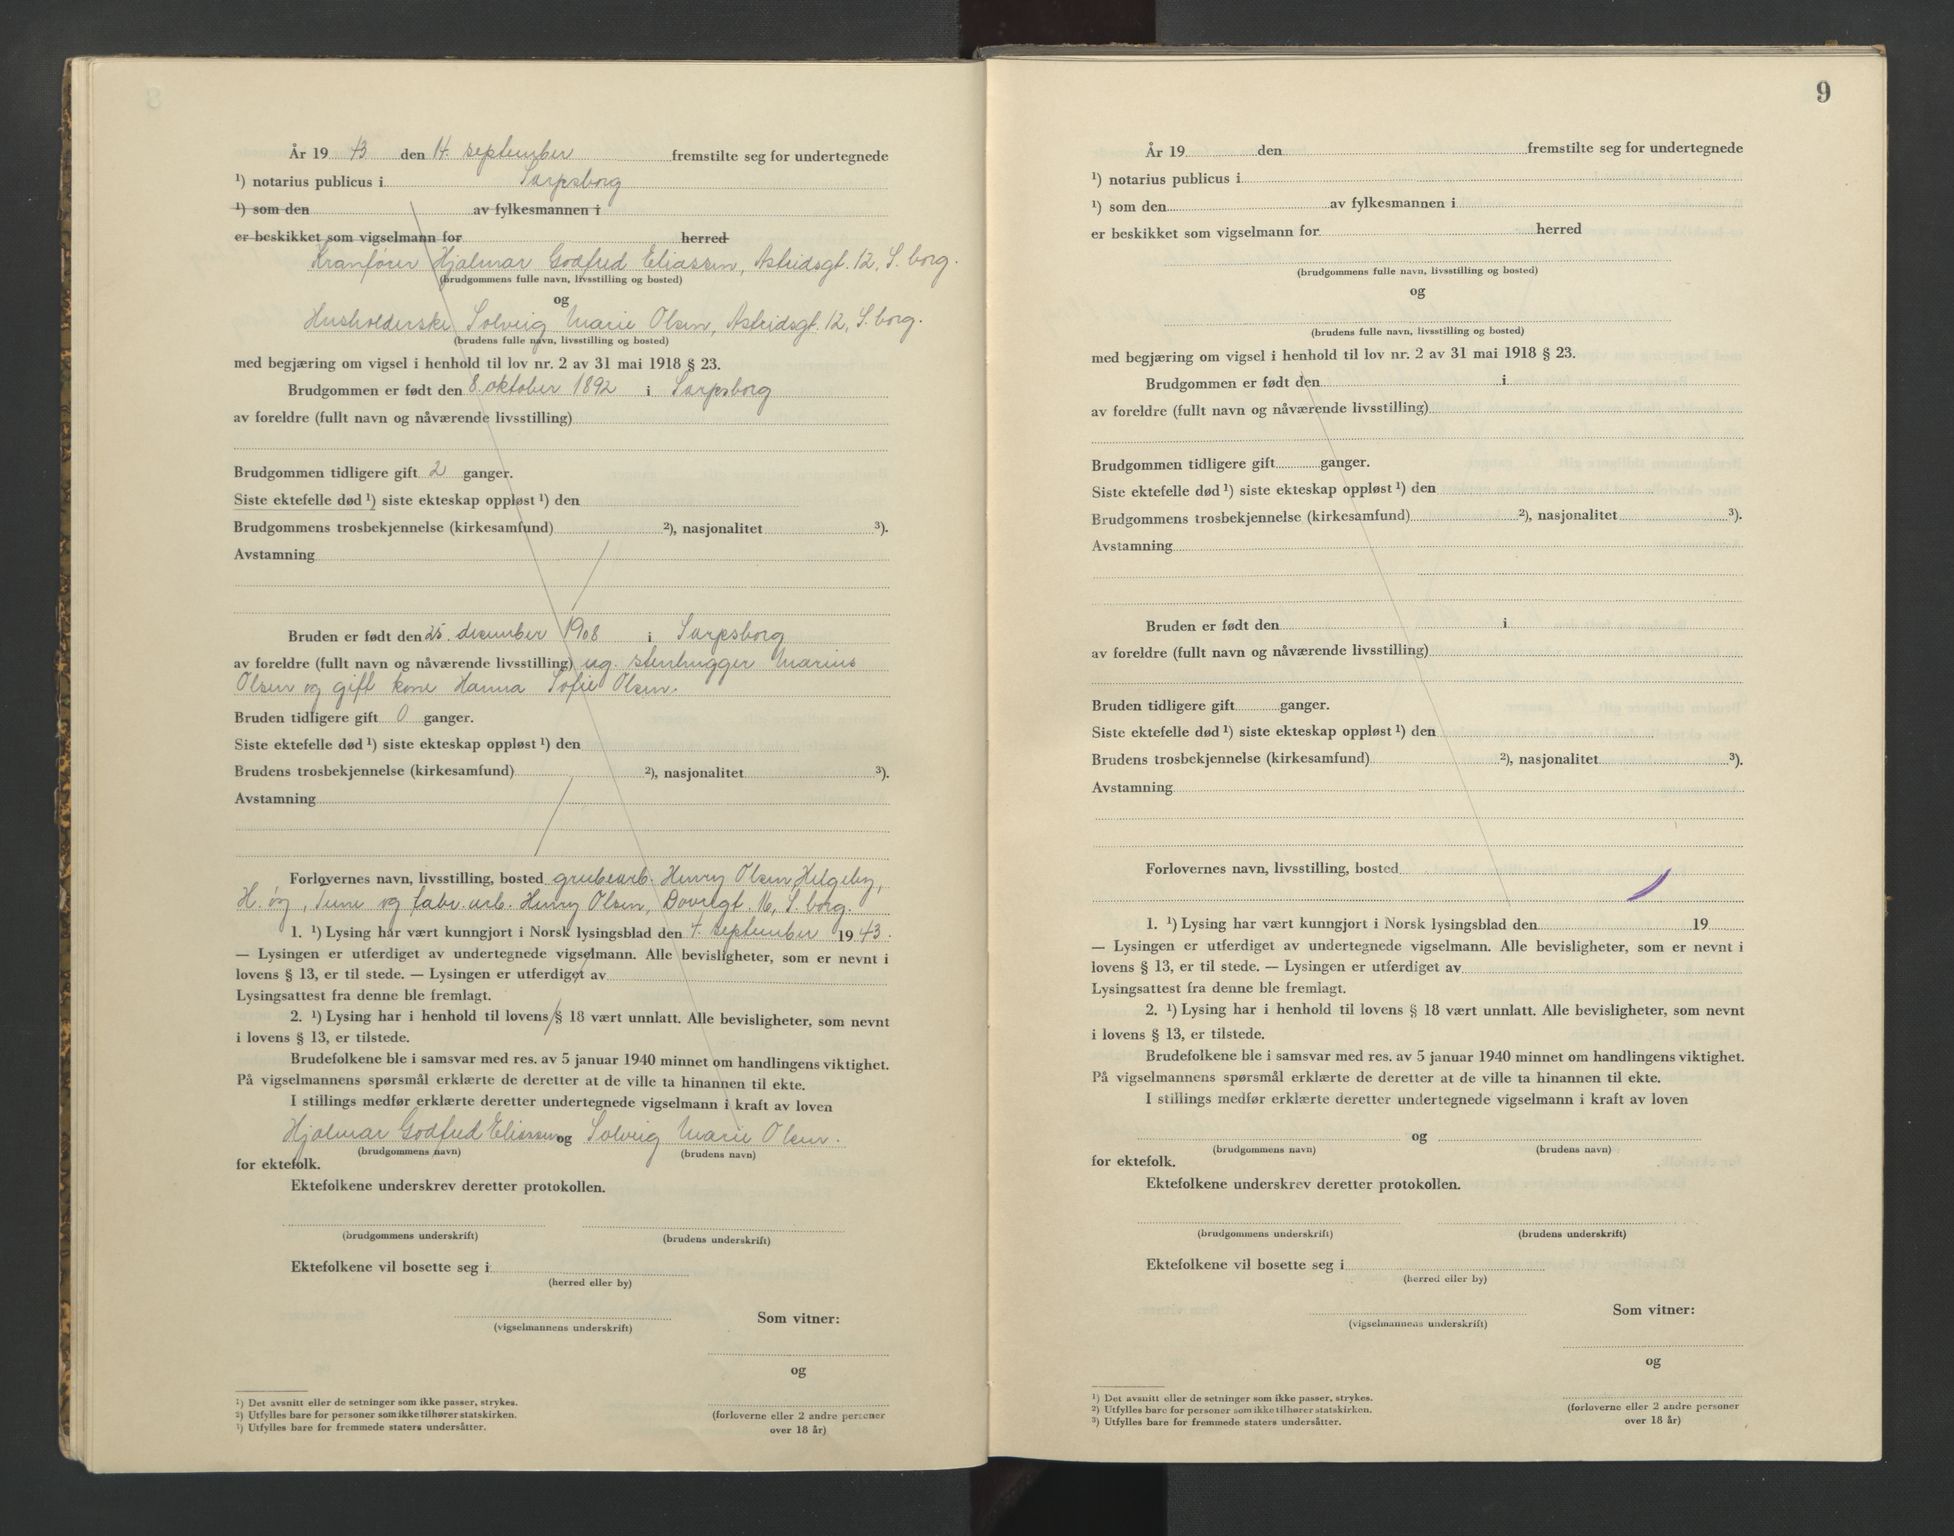 År 19 43 den 14. september fremstilte seg for undertegnede
¹) notarius publicus i Sarpsborg
¹) som den av fylkesmannen i
er beskikket som vigselmann for herred
Kranfører Hjalmar Godfred Eliassen, Astridsgt. 12, S.borg.
(brudgommens fulle navn, livsstilling og bosted)
og
Husholderske Solveig Marie Olsen, Astridsgt. 12, S.borg.
(brudens fulle navn, livsstilling og bosted)
med begjæring om vigsel i henhold til lov nr. 2 av 31 mai 1918 § 23.
Brudgommen er født den 8. oktober 1892 i Sarpsborg
av foreldre (fullt navn og nåværende livsstilling)
Brudgommen tidligere gift 2 ganger.
Siste ektefelle død ¹) siste ekteskap oppløst ¹) den
Brudgommens trosbekjennelse (kirkesamfund) ²), nasjonalitet ³).
Avstamning
Bruden er født den 25. december 1908 i Sarpsborg
av foreldre (fullt navn og nåværende livsstilling) ug. stenhugger Marius
Olsen og gift kone Hanna Sofie Olsen.
Bruden tidligere gift 0 ganger.
Siste ektefelle død ¹) siste ekteskap oppløst ¹) den
Brudens trosbekjennelse (kirkesamfund) ²), nasjonalitet ³).
Avstamning
Forlovernes navn, livsstilling, bosted grubearb. Henry Olsen, Helgeby,
H.øy, Tune og fabr.arb. Henry Olsen, Dovregt. 16, S.borg.
1. ¹) Lysing har vært kunngjort i Norsk lysingsblad den 4. september 19 43.
— Lysingen er utferdiget av undertegnede vigselmann. Alle bevisligheter, som er nevnt i
lovens § 13, er til stede. — Lysingen er utferdiget av
Lysingsattest fra denne ble fremlagt.
2. ¹) Lysing har i henhold til lovens § 18 vært unnlatt. Alle bevisligheter, som nevnt
i lovens § 13, er tilstede.
Brudefolkene ble i samsvar med res. av 5 januar 1940 minnet om handlingens viktighet.
På vigselmannens spørsmål erklærte de deretter at de ville ta hinannen til ekte.
I stillings medfør erklærte deretter undertegnede vigselmann i kraft av loven
Hjalmar Godfred Eliassen og Solveig Marie Olsen.
(brudgommens navn) (brudens navn)
for ektefolk.
Ektefolkene underskrev deretter protokollen.
(brudgommens underskrift) (brudens underskrift)
Ektefolkene vil bosette seg i
(herred eller by)
Som vitner:
(vigselmannens underskrift)
og
¹) Det avsnitt eller de setninger som ikke passer, strykes.
²) Utfylles bare for personer som ikke tilhører statskirken.
³) Utfylles bare for fremmede staters undersåtter.
(forloverne eller 2 andre personer
over 18 år)
9
År 19 den fremstilte seg for undertegnede
¹) notarius publicus i
¹) som den av fylkesmannen i
er beskikket som vigselmann for herred
(brudgommens fulle navn, livsstilling og bosted)
og
(brudens fulle navn, livsstilling og bosted)
med begjæring om vigsel i henhold til lov nr. 2 av 31 mai 1918 § 23.
Brudgommen er født den i
av foreldre (fullt navn og nåværende livsstilling)
Brudgommen tidligere gift ganger.
Siste ektefelle død ¹) siste ekteskap oppløst ¹) den
Brudgommens trosbekjennelse (kirkesamfund) ²), nasjonalitet ³).
Avstamning
Bruden er født den i
av foreldre (fullt navn og nåværende livsstilling)
Bruden tidligere gift ganger.
Siste ektefelle død ¹) siste ekteskap oppløst ¹) den
Brudens trosbekjennelse (kirkesamfund) ²), nasjonalitet ³).
Avstamning
Forlovernes navn, livsstilling, bosted
1. ¹) Lysing har vært kunngjort i Norsk lysingsblad den 19
— Lysingen er utferdiget av undertegnede vigselmann. Alle bevisligheter, som er nevnt i
lovens § 13, er til stede. — Lysingen er utferdiget av
Lysingsattest fra denne ble fremlagt.
2. ¹) Lysing har i henhold til lovens § 18 vært unnlatt. Alle bevisligheter, som nevnt
i lovens § 13, er tilstede.
Brudefolkene ble i samsvar med res. av 5 januar 1940 minnet om handlingens viktighet.
På vigselmannens spørsmål erklærte de deretter at de ville ta hinannen til ekte.
I stillings medfør erklærte deretter undertegnede vigselmann i kraft av loven
og
(brudgommens navn) (brudens navn)
for ektefolk.
Ektefolkene underskrev deretter protokollen.
(brudgommens underskrift) (brudens underskrift)
Ektefolkene vil bosette seg i
(herred eller by)
Som vitner:
(vigselmannens underskrift)
og
¹) Det avsnitt eller de setninger som ikke passer, strykes.
²) Utfylles bare for personer som ikke tilhører statskirken.
³) Utfylles bare for fremmede staters undersåtter.
(forloverne eller 2 andre personer
over 18 år)